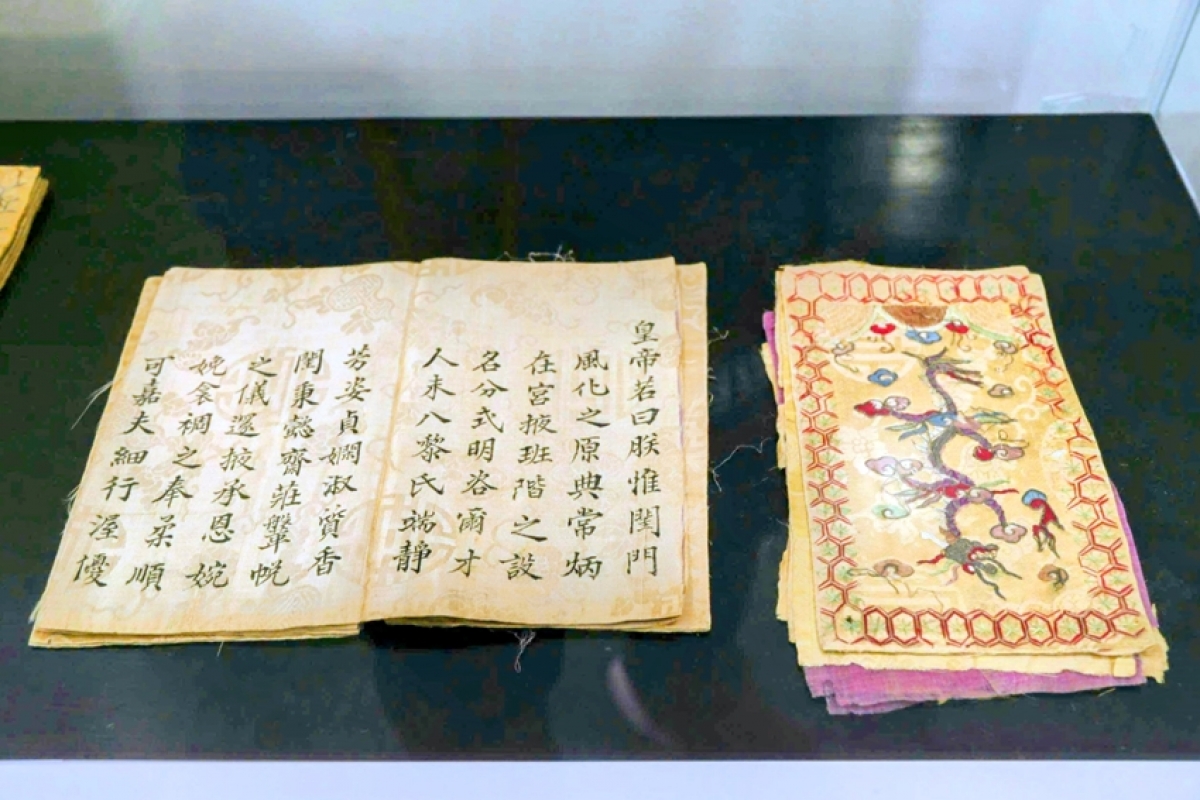 皇帝若曰朕惟閨門
風化之原典常炳
在宮掖班階之設
名分式明咨爾才
人耒八黎氏端靜
芳姿貞嫻淑質香
閨秉懿齋莊鞶帨
之儀選掖承恩婉
娩衾裯之奉柔順
可嘉夫細行渥優